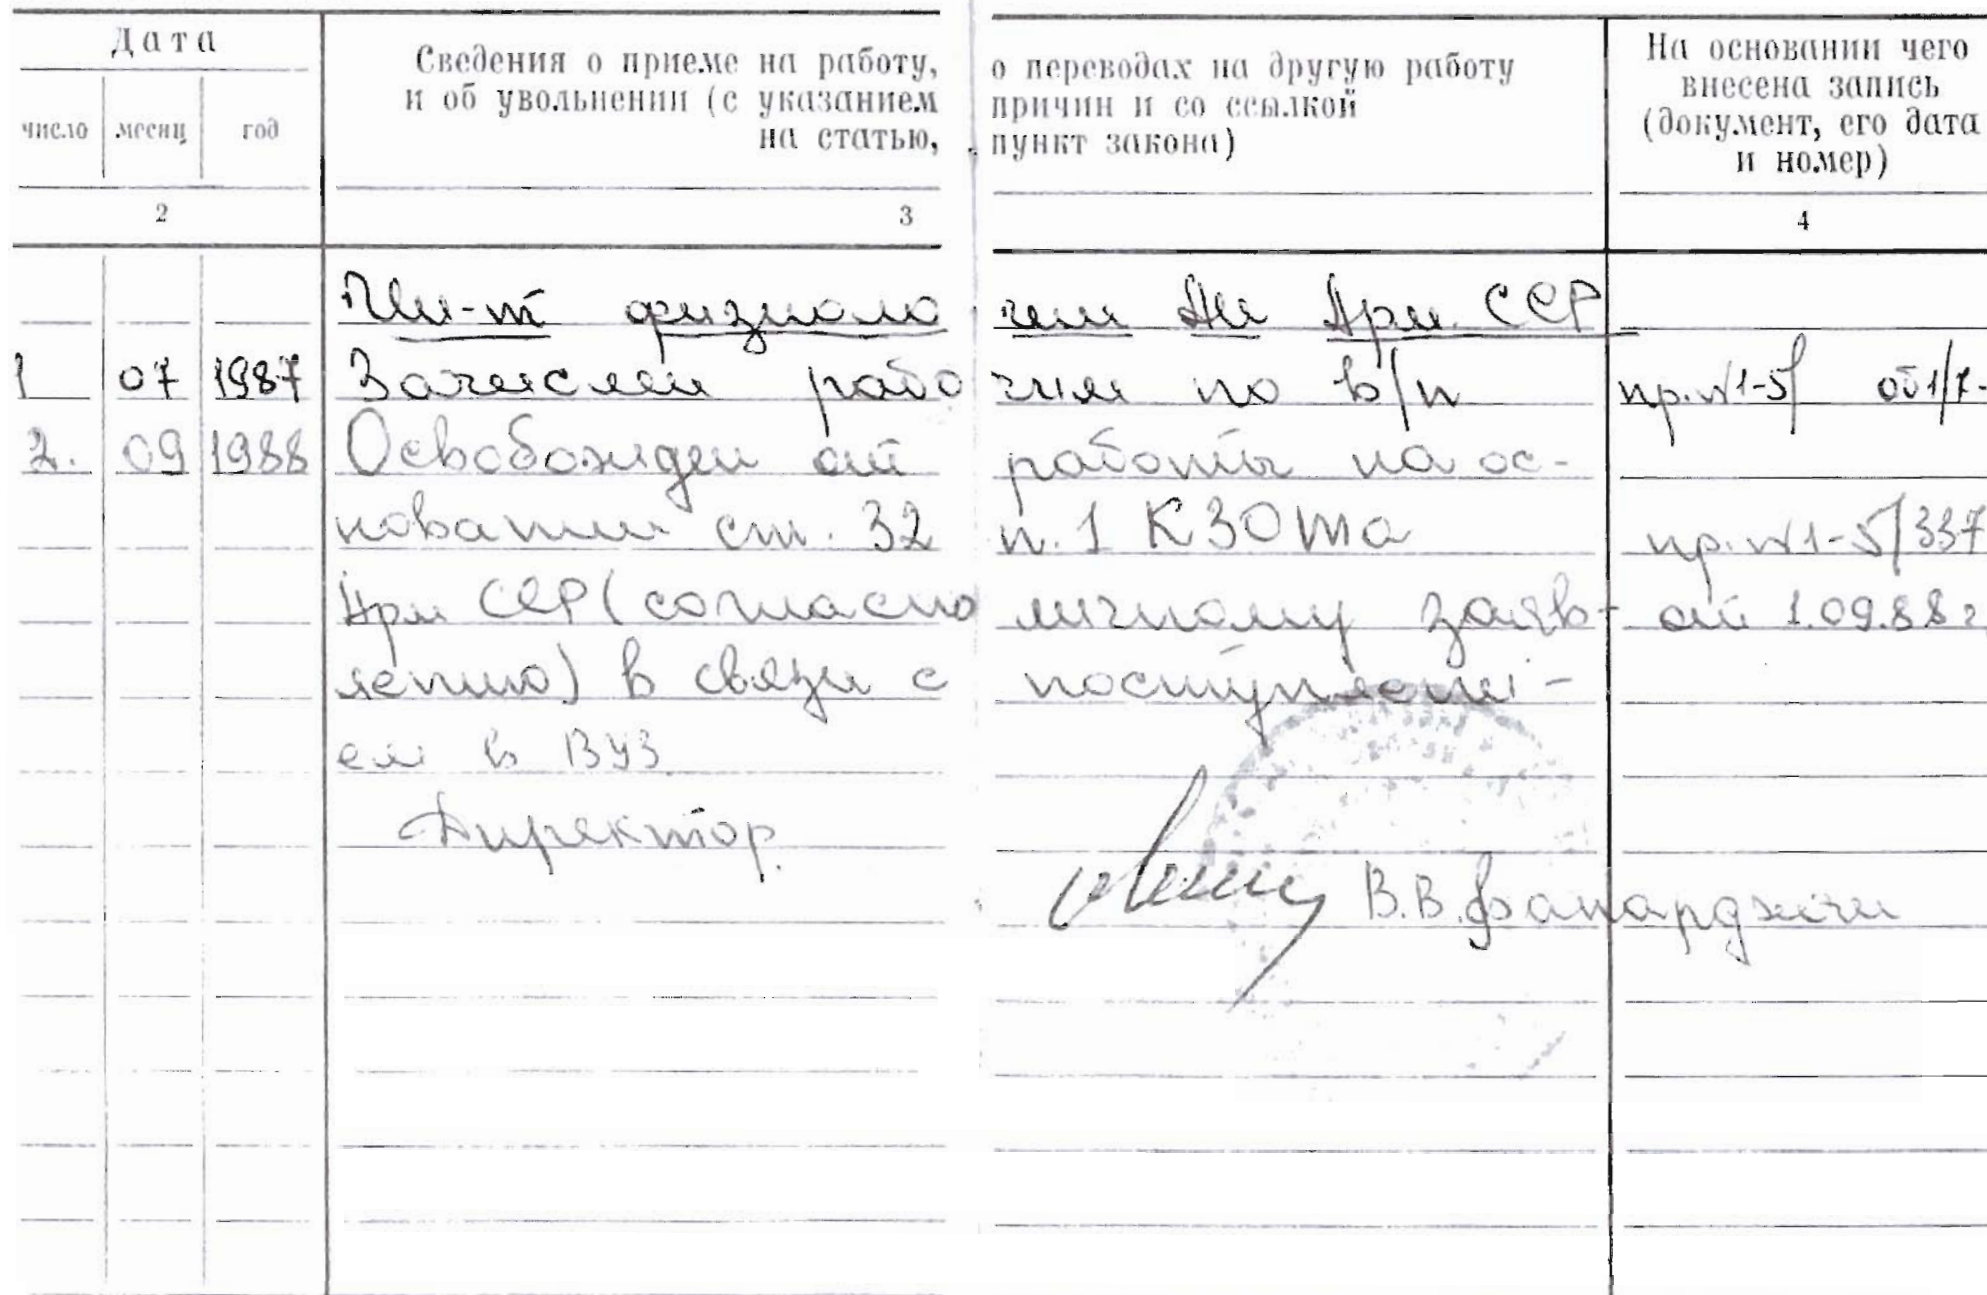 Дата
Сведения о приеме на работу, о переводах на другую работу
и об увольнении (с указанием причин и со ссылкой
на статью, пункт закона)
На основании чего
внесена запись
(документ, его дата
и номер)
число месяц год
2 3 4
Ин-т физиологии АН Арм. ССР
1 07 1987 Зачислен рабочим по в/н пр. №1-5/ от 1/7-
2. 09 1988 Освобожден от работы на ос-
новании ст. 32 п. 1 КЗОТа пр. №1-5/337
Арм ССР (согласно личному заяв- от 1.09.88 г.
лению) в связи с поступлени-
ем в ВУЗ
Директор.
В.В. Фанарджян